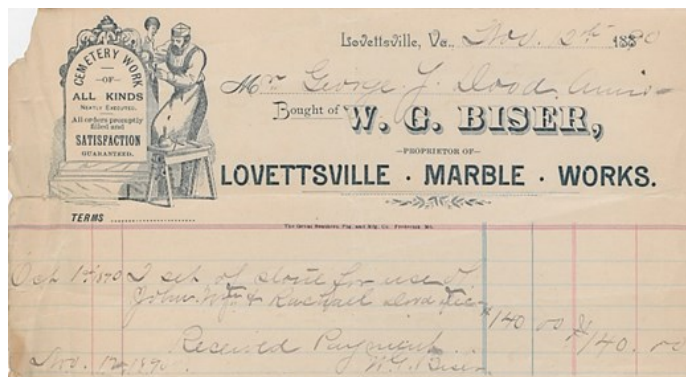 CEMETERY WORK
—OF—
ALL KINDS
NEATLY EXECUTED.
All orders promptly
filled and
SATISFACTION
GUARANTEED.
Lovettsville, Va., Nov. 12th 1890
Mr George J. Dood, Amis-
Bought of W. G. BISER,
—PROPRIETOR OF—
LOVETTSVILLE · MARBLE · WORKS.
TERMS
The Great Southern Ptg. and Mfg. Co. Frederick, Md.
Oct 1st 1890 2 set of stone for use of
John Wm & Rachael
$140 00 $140.00
Received Payment
Nov. 12 1890. W. G. Biser